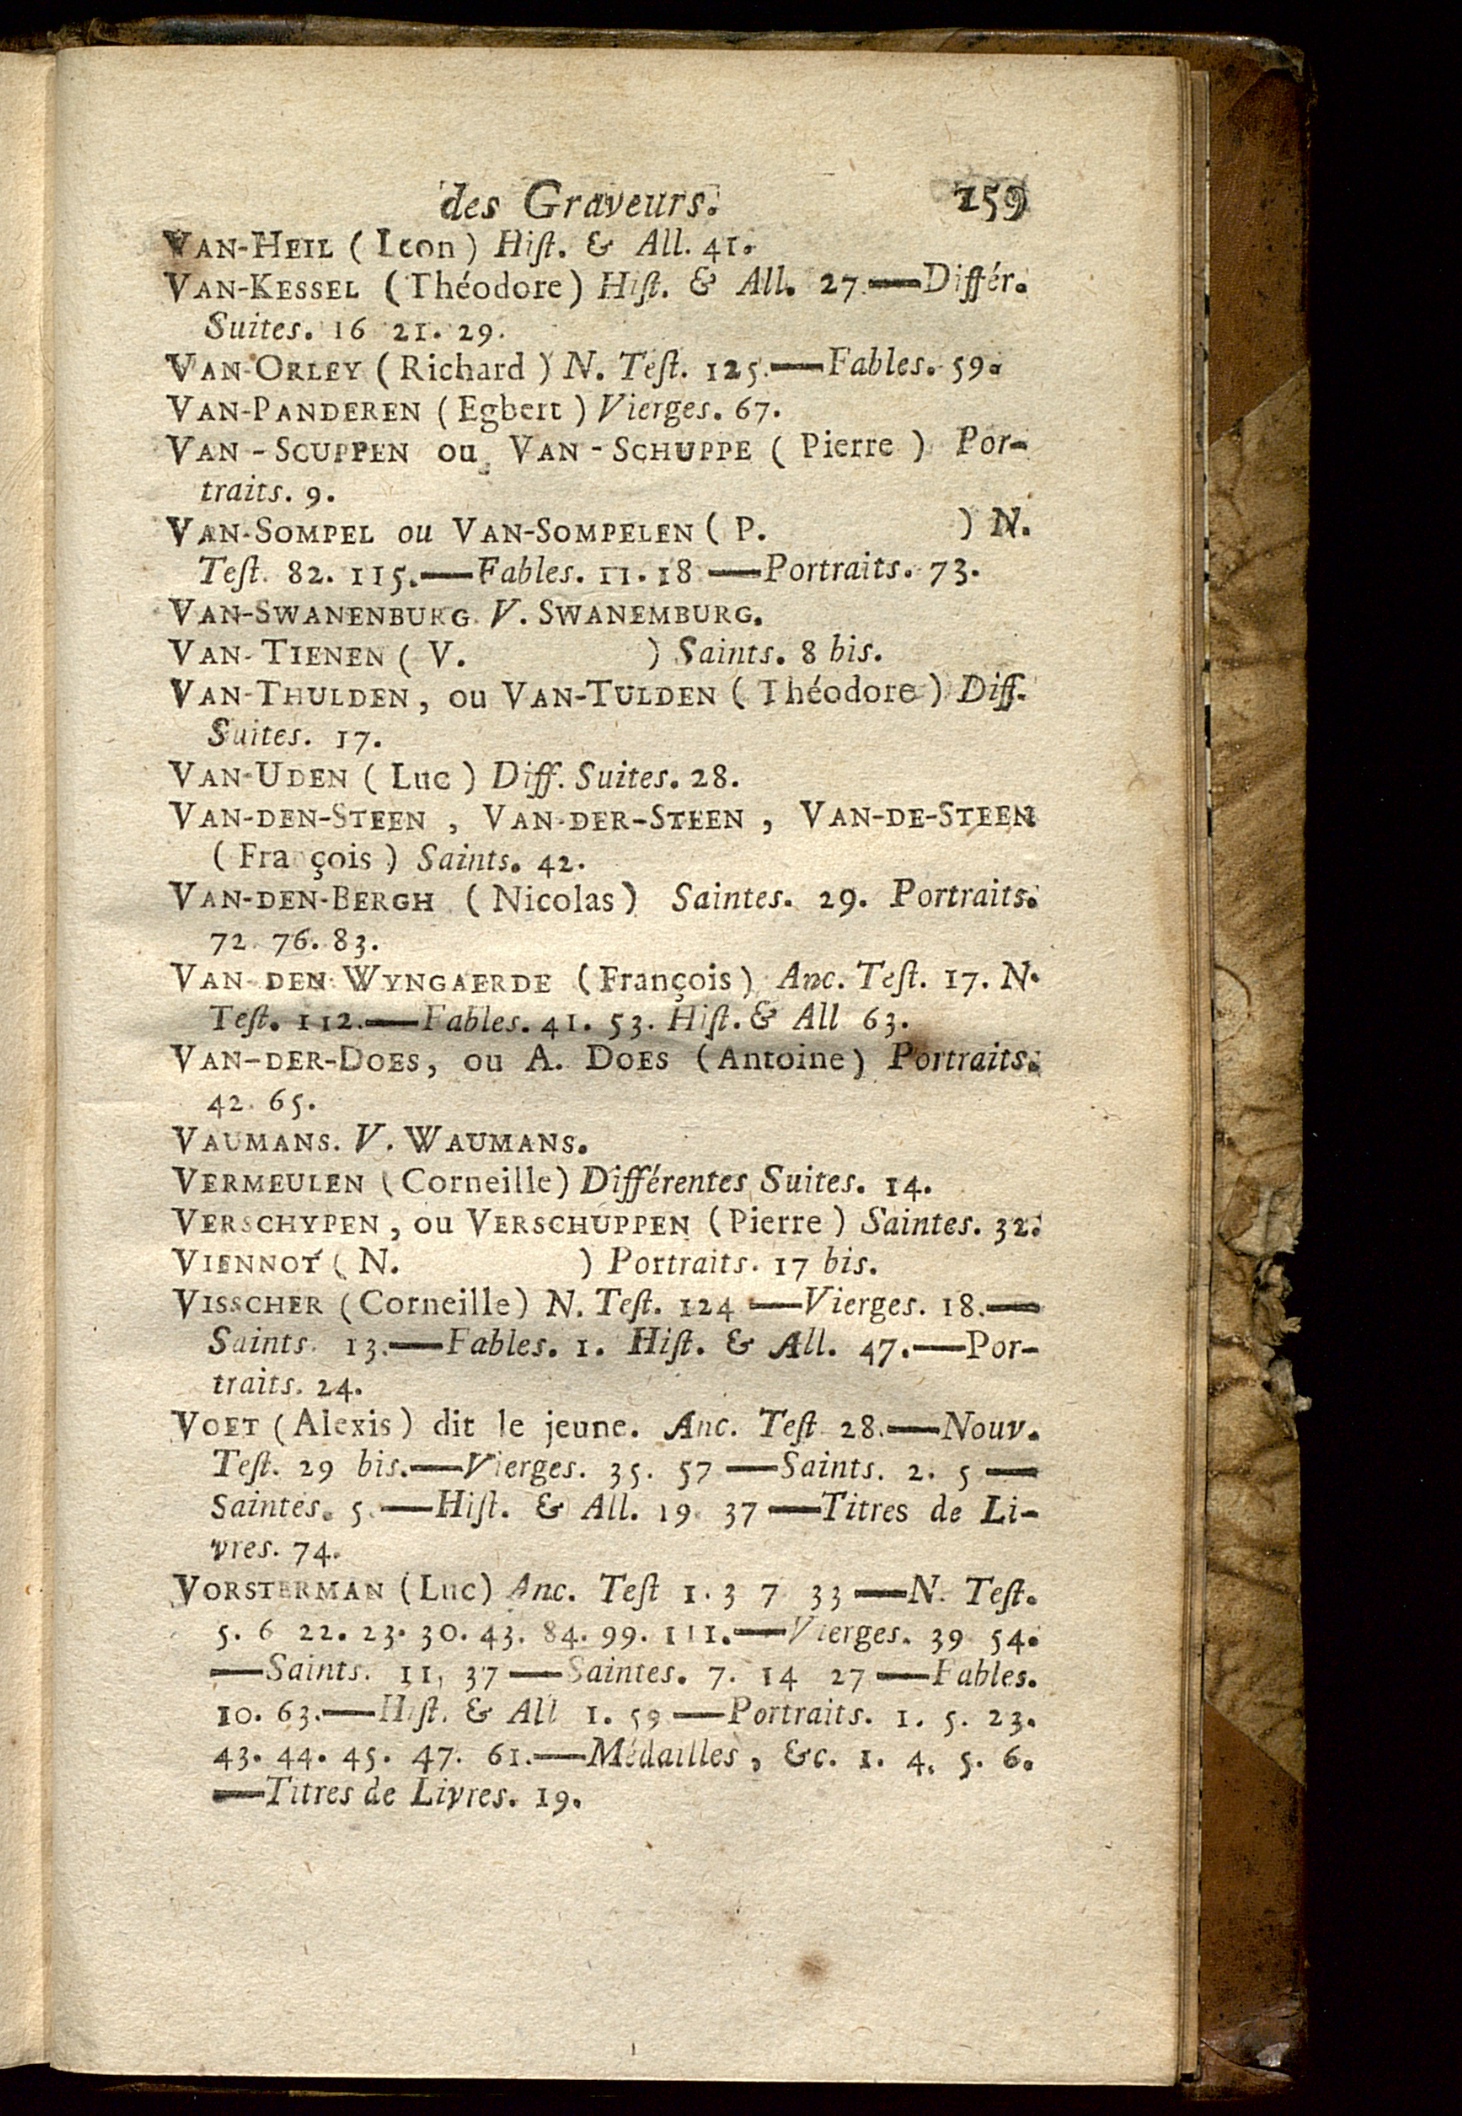 des Graveurs. 259
VAN-HEIL (Leon) Hiſt. & All. 41.
VAN-KESSEL (Théodore) Hiſt. & All. 27.—Différ.
Suites. 16 21. 29.
VAN-ORLEY (Richard) N. Teſt. 125.—Fables. 59.
VAN-PANDEREN (Egbert) Vierges. 67.
VAN-SCUPPEN ou VAN-SCHUPPE (Pierre) Por-
traits. 9.
VAN-SOMPEL ou VAN-SOMPELEN (P. ) N.
Teſt. 82. 115.—Fables. 11. 18—Portraits. 73.
VAN-SWANENBURG. V. SWANEMBURG.
VAN-TIENEN (V. ) Saints. 8 bis.
VAN-THULDEN, ou VAN-TULDEN (Théodore) Diff.
Suites. 17.
VAN-UDEN (Luc) Diff. Suites. 28.
VAN-DEN-STEEN, VAN-DER-STEEN, VAN-DE-STEEN
(François) Saints. 42.
VAN-DEN-BERGH (Nicolas) Saintes. 29. Portraits.
72. 76. 83.
VAN-DEN WYNGAERDE (François) Anc. Teſt. 17. N.
Teſt. 112.—Fables. 41. 53. Hiſt. & All 63.
VAN-DER-DOES, ou A. DOES (Antoine) Portraits.
42. 65.
VAUMANS. V. WAUMANS.
VERMEULEN (Corneille) Différentes Suites. 14.
VERSCHYPEN, ou VERSCHUPPEN (Pierre) Saintes. 32.
VIENNOT (N. ) Portraits. 17 bis.
VISSCHER (Corneille) N. Teſt. 124—Vierges. 18.—
Saints. 13.—Fables. 1. Hiſt. & All. 47.—Por-
traits. 24.
VOET (Alexis) dit le jeune. Anc. Teſt 28.—Nouv.
Teſt. 29 bis.—Vierges. 35. 57—Saints. 2. 5—
Saintes. 5.—Hiſt. & All. 19. 37—Titres de Li-
vres. 74.
VORSTERMAN (Luc) Anc. Teſt 1. 3 7 33—N. Teſt.
5. 6 22. 23. 30. 43. 84. 99. 111.—Vierges. 39 54.
—Saints. 11, 37—Saintes. 7. 14 27—Fables.
10. 63.—Hiſt. & All 1. 59—Portraits. 1. 5. 23.
43. 44. 45. 47. 61.—Médailles, &c. 1. 4. 5. 6.
—Titres de Livres. 19.